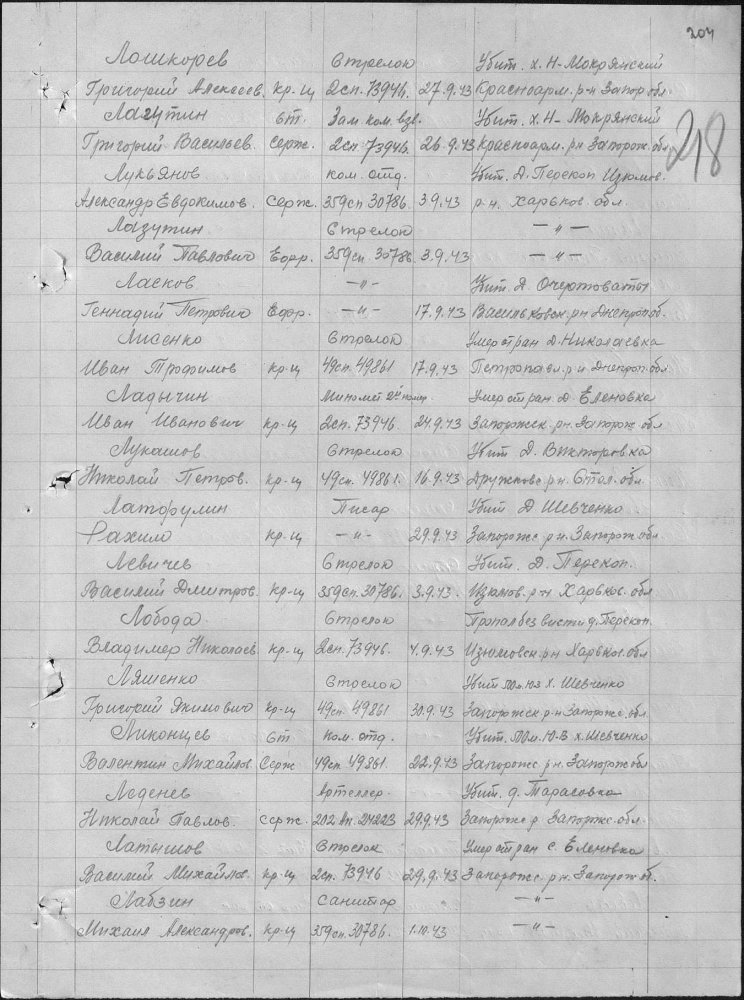 204
218
Лошкорев Стрелок Убит. х. Н-Мокрянский
Григорий Алексеев. кр-ц 2сп. 73946. 27.9.43 Красноарм. р-н Запор. обл.
Лазутин Ст. Зам. ком. взв. Убит. х. Н-Мокрянский
Григорий Васильев. Серж. 2сп 73946. 26.9.43 Красноарм. рн. Запорож. обл
Лукьянов ком. отд. Убит. Д. Перекоп Изюмов.
Александр Евдокимов. Серж. 359сп 30786. 3.9.43 р-н. Харьков. обл.
Лазутин Стрелок —"—
Василий Павлович Ефр. 359сп. 30786 3.9.43 —"—
Ласков —"— Убит. Д. Очертоваты
Геннадий Петрович Ефр. —"— 17.9.43 Васильковск. рн Днепроп. об.
Лисенко Стрелок Умер от ран Д. Николаевка
Иван Трофимов кр-ц 49сп. 49861 17.9.43 Петропавл. р-н. Днепроп. обл
Ладычин Миномет. 2й номер Умер от ран. Д. Еленовка
Иван Иванович кр-ц 2сп. 73946 24.9.43 Запорожск. рн. Запорож. обл
Лукашов Стрелок Убит Д. Викторовка
Николай Петров. кр-ц 49сп. 49861. 16.9.43 Дружковс. рн. Стал. обл.
Латфулин Писар Убит Д Шевченко
Рахило кр-ц —"— 29.9.43 Запорожс рн. Запорож обл
Левичев Стрелок Убит. Д. Перекоп.
Василий Дмитров. кр-ц 359сп. 30786. 3.9.43. Изюмов. р-н Харьков. обл
Лобода Стрелок Пропал без вести д. Перекоп.
Владимер Николаев кр-ц 2сп. 73946. 4.9.43 Изюмовск. рн Харьков. обл
Ляшенко Стрелок Убит 700м. юз х. Шевченко
Григорий Якимович кр-ц 49сп. 49861 30.9.43 Запорожск р-н Запорож. обл
Ликонцев Ст ком. отд. Убит. Ю-В х. Шевченко
Валентин Михайлов Серж 49сп 49861 22.9.43 Запорожс рн. Запорож обл
Леденев Артеллер. Убит. д. Тарасовка
Николай Павлов. Серж. 202 24223 29.9.43 Запорожс р. Запорожс. обл.
Латышов Стрелок Умер от ран с. Еленовка
Василий Михайлов кр-ц 2сп. 73946 29.9.43 Запорожс. рн. Запорож об.
Лабзин Санитар —"—
Михаил Александров. кр-ц 359сп. 30786. 1.10.43 —"—